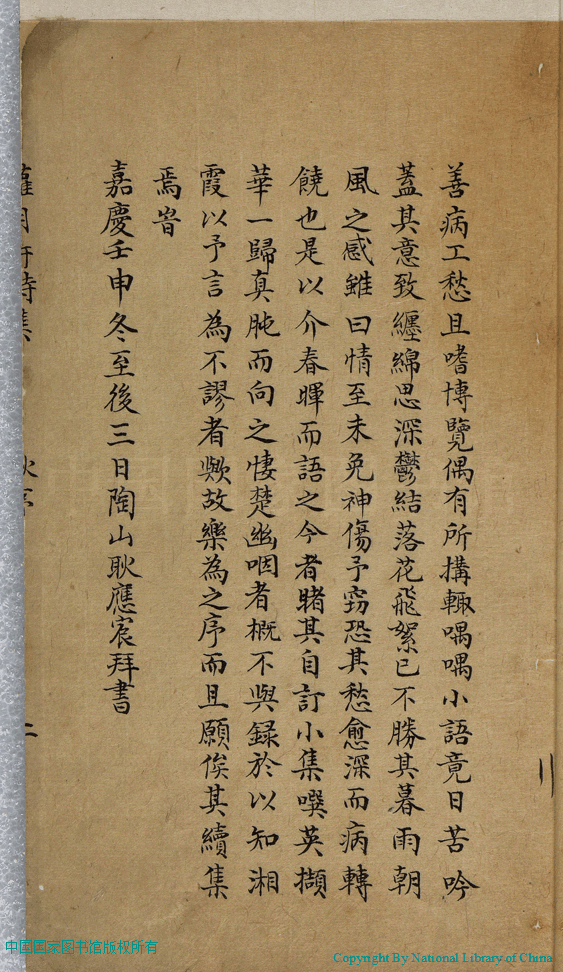 善病工愁且嗜博覽偶有所搆輒喁喁小語竟日苦吟
蓋其意致纏綿思深鬱結落花飛絮已不勝其暮雨朝
風之感雖曰情至未免神傷予竊恐其愁愈深而病轉
饒也是以介春暉而語之今者睹其自訂小集噀英擷
華一歸真肫而向之悽楚幽咽者概不與録於以知湘
霞以予言為不謬者歟故樂為之序而且願俟其續集
焉旹
嘉慶壬申冬至後三日陶山耿應宸拜書
二
中国国家图书馆版权所有
Copyright By National Library of China